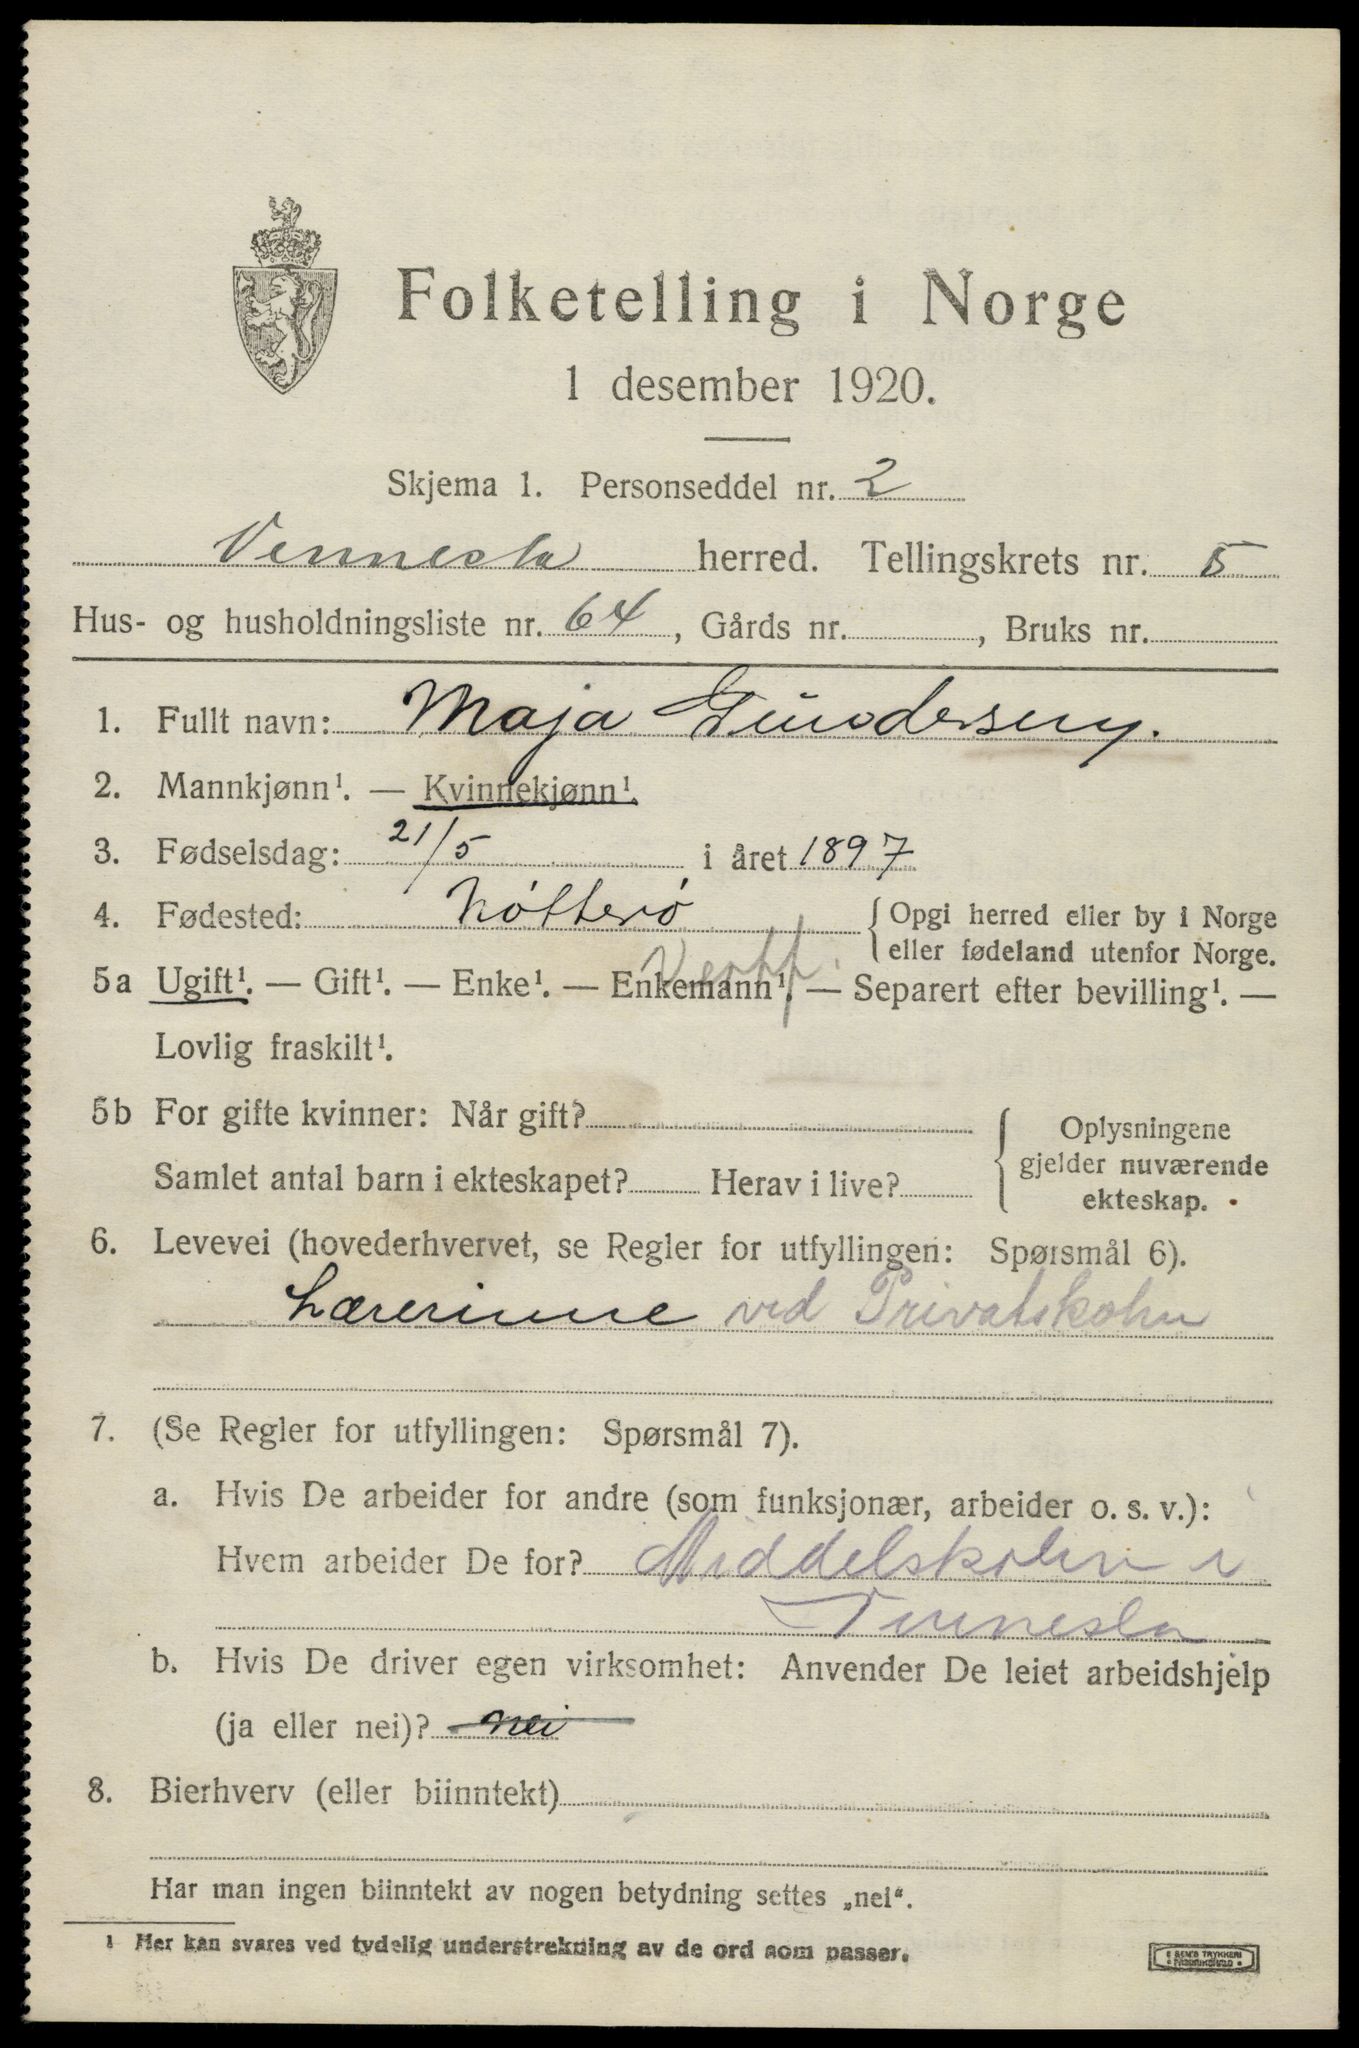 Folketelling i Norge
1 desember 1920.
Skjema 1. Personseddel nr. 2
Vennesla herred. Tellingskrets nr. 5
Hus- og husholdningsliste nr. 64, Gårds nr. , Bruks nr.
1. Fullt navn: Maja Gundersen.
2. Mannkjønn¹. — Kvinnekjønn¹.
3. Fødselsdag: 21/5 i året 1897
4. Fødested: Nötterö { Opgi herred eller by i Norge
eller fødeland utenfor Norge.
Vestf.
5a Ugift¹. — Gift¹. — Enke¹. — Enkemann¹. — Separert efter bevilling¹. —
Lovlig fraskilt¹.
5b For gifte kvinner: Når gift? { Oplysningene
gjelder nuværende
Samlet antal barn i ekteskapet? Herav i live?
ekteskap.
6. Levevei (hovederhvervet, se Regler for utfyllingen: Spørsmål 6).
Lærerinne ved Privatskolen
7. (Se Regler for utfyllingen: Spørsmål 7).
a. Hvis De arbeider for andre (som funksjonær, arbeider o. s. v.):
Hvem arbeider De for? Middelskolen i
Vennesla
b. Hvis De driver egen virksomhet: Anvender De leiet arbeidshjelp
(ja eller nei)? nei
8. Bierhverv (eller biinntekt)
Har man ingen biinntekt av nogen betydning settes „nei“.
¹ Her kan svares ved tydelig understrekning av de ord som passer.